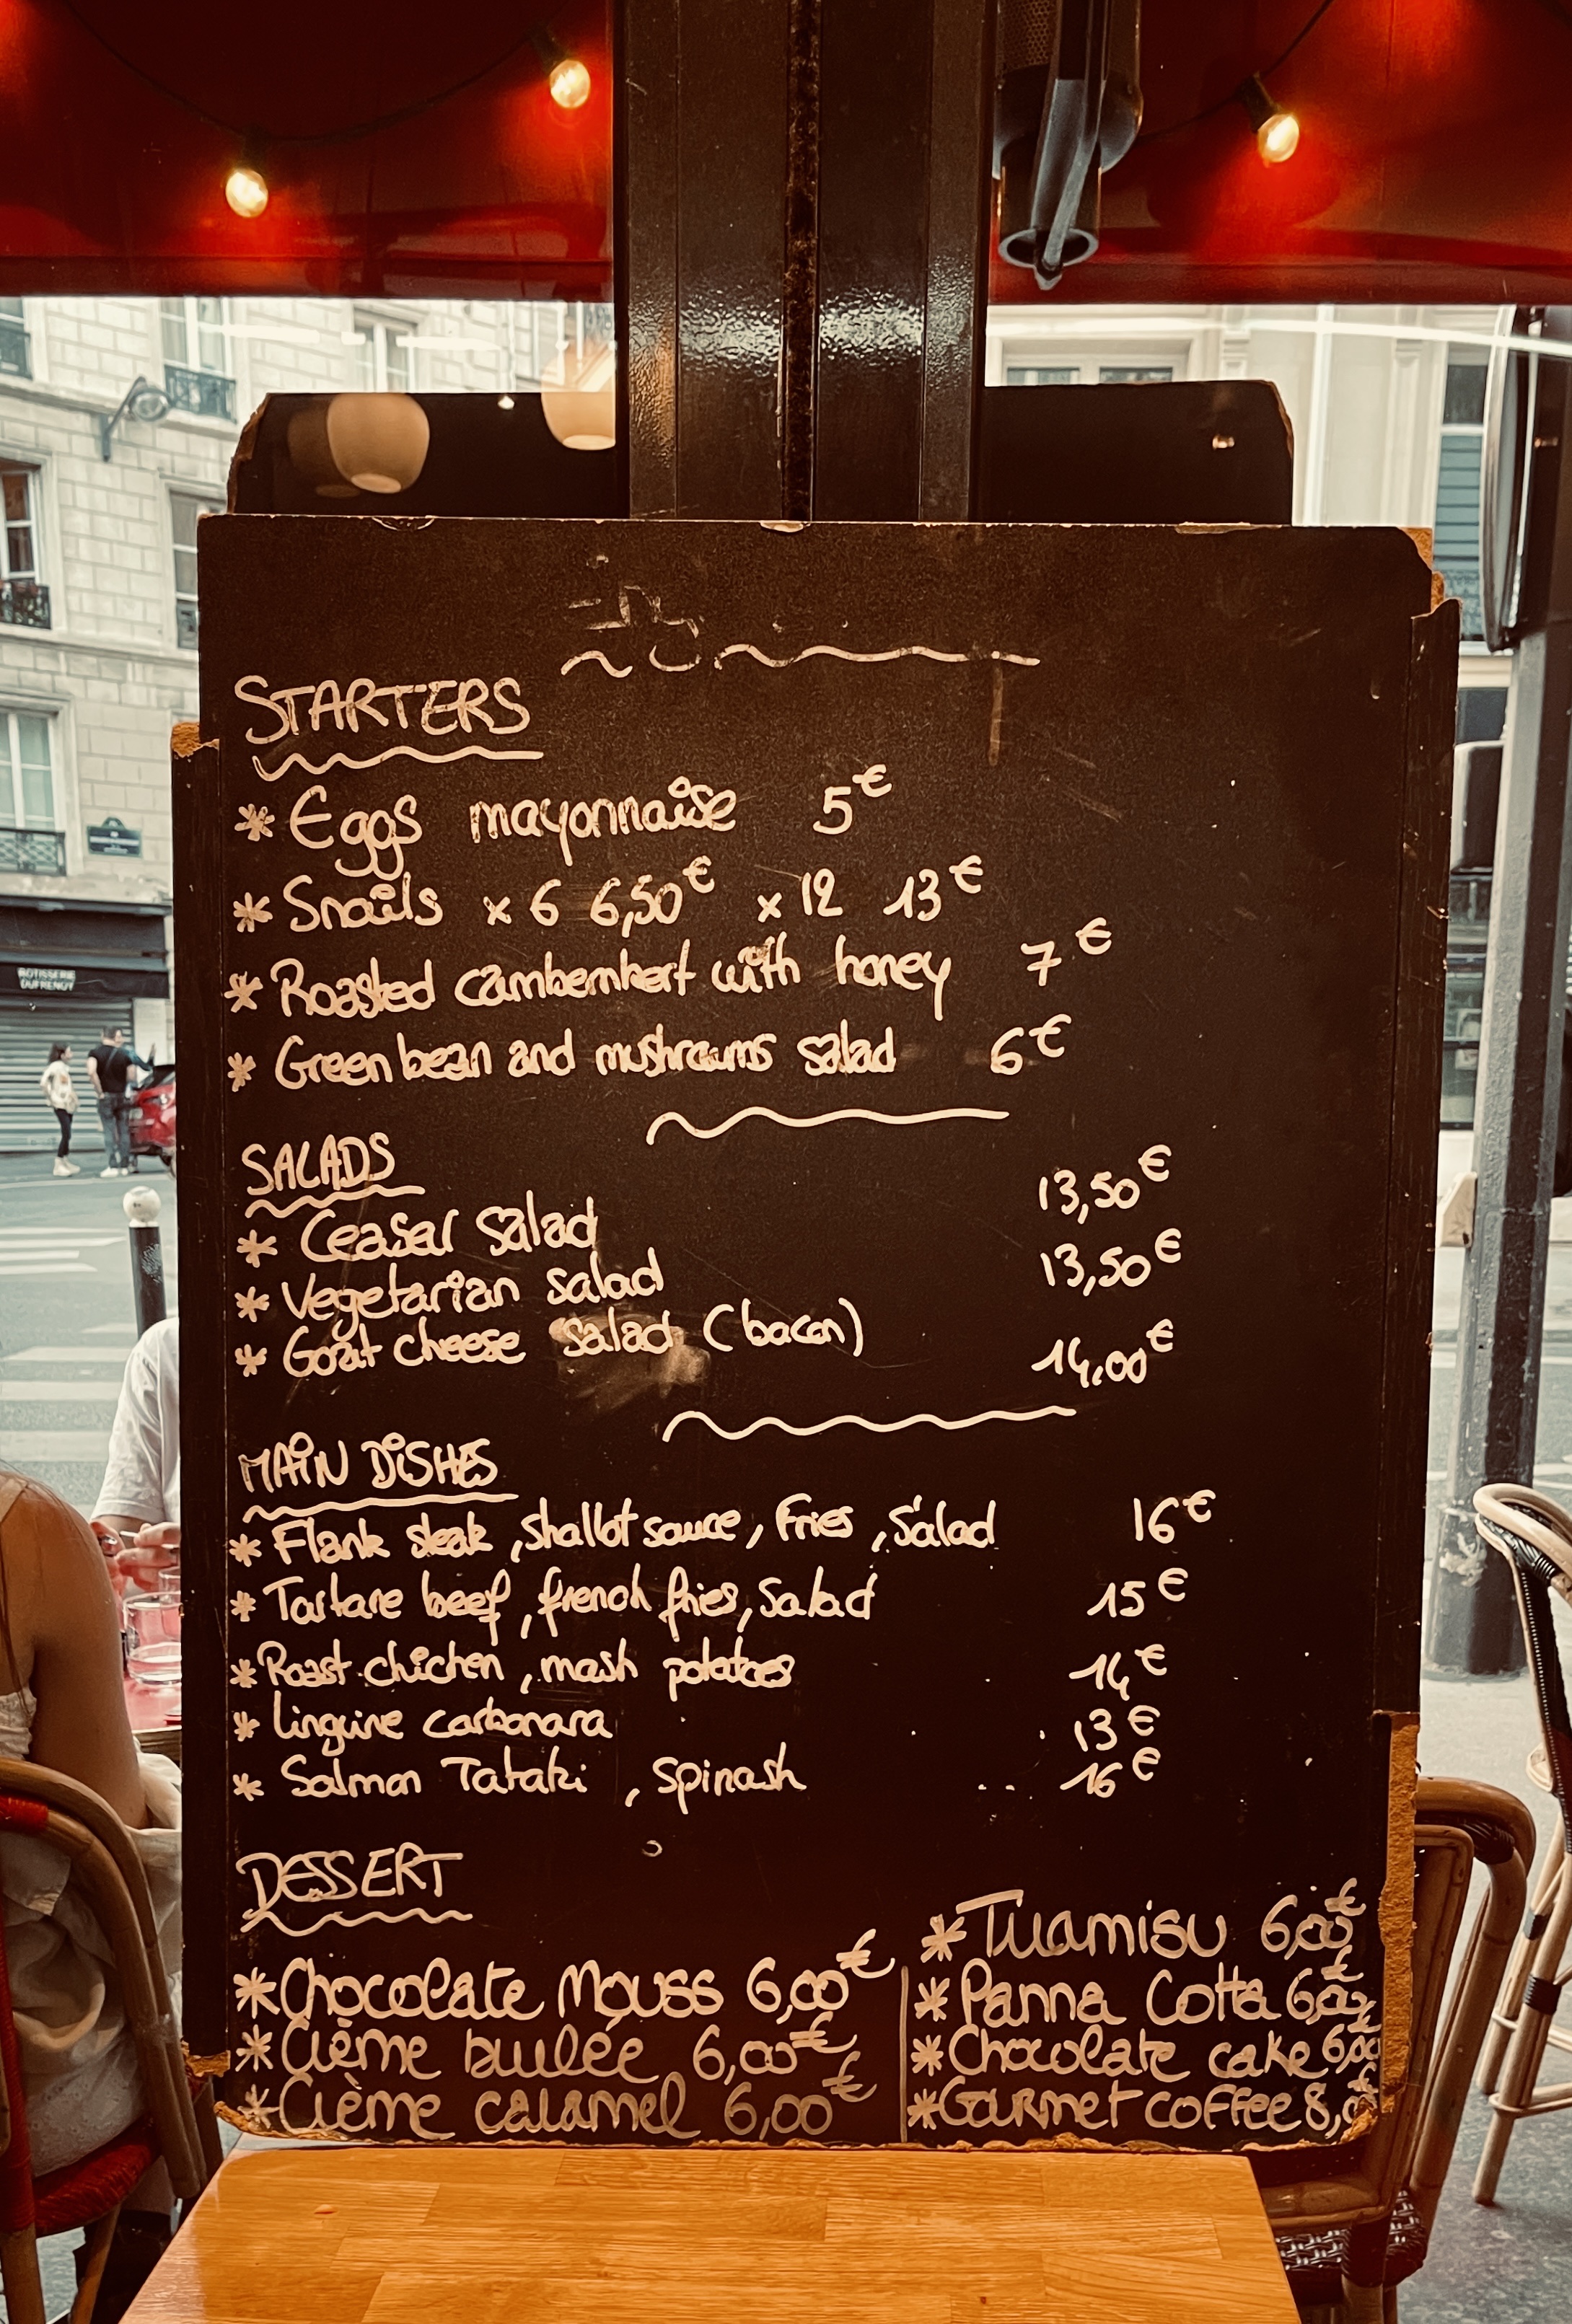 STARTERS
* Eggs mayonnaise 5€
* Snails x 6 6,50€ x 12 13€
* Roasted cambembert with honey 7€
* Green bean and mushroums salad 6€
SALADS
* Ceasar salad 13,50€
* Vegetarian salad 13,50€
* Goat cheese salad (bacon) 14,00€
MAIN DISHES
* Flank steak, shallot sauce, Fries, Salad 16€
* Tartare beef, french fries, Salad 15€
* Roast chicken, mash potatoes 14€
* linguine carbonara 13€
* Salmon Tataki, spinash 16€
DESSERT
* Chocolate Mouss 6,00€
* Crème brulée 6,00€
* Crème caramel 6,00€
* Tiramisu 6,00€
* Panna Cotta 6,00€
* Chocolate cake 6,00
* Gourmet coffee 8,0€
ROTISSERIE
DUFRENOY